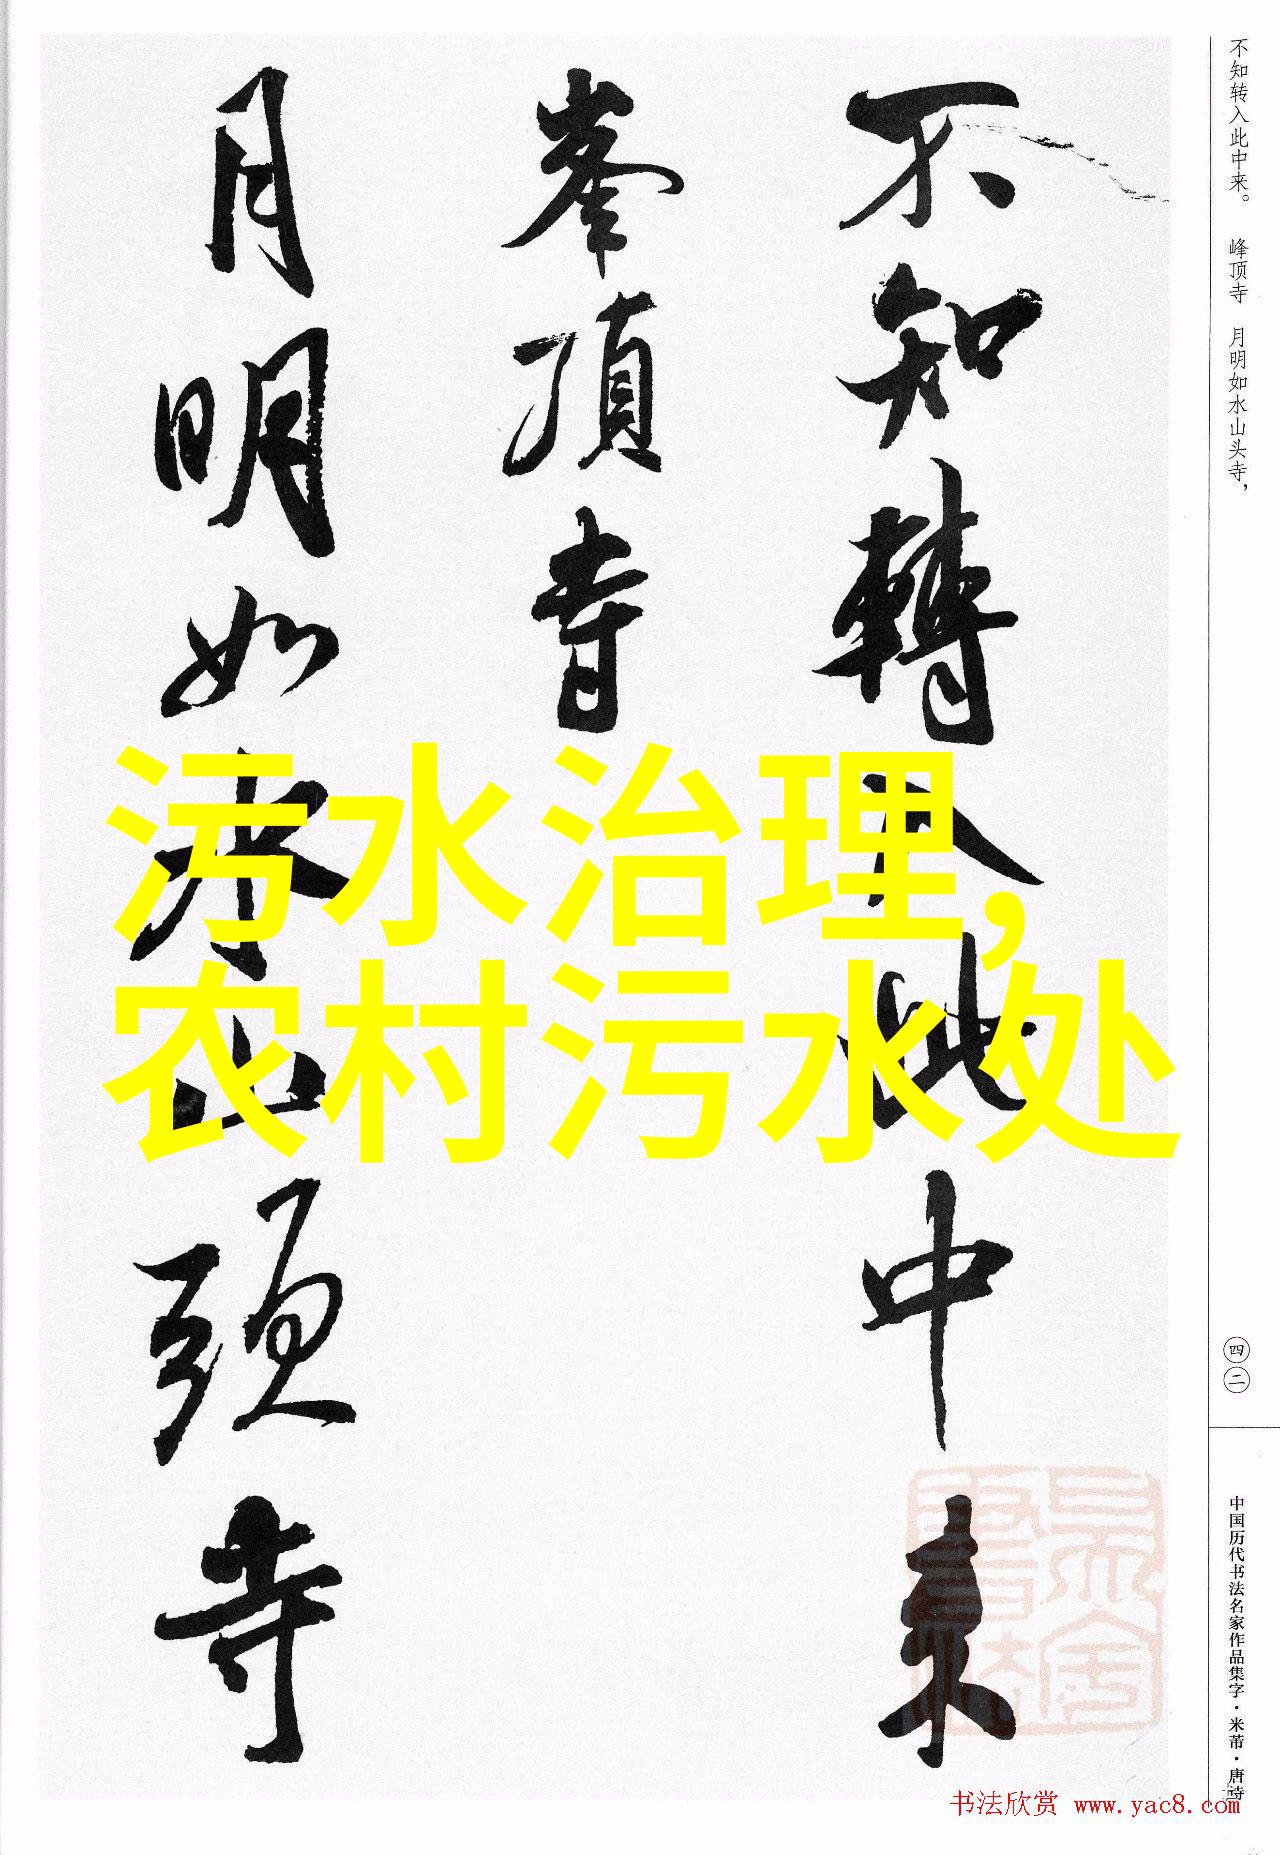 不知轉入此中来
峯頂寺
月明如水山頭寺
污水治理,
农村污水处
不知转入此中来。 峰顶寺 月明如水山头寺，
四二
中国历代书法名家作品集字·米芾·唐诗
书法欣赏 www.yac8.com